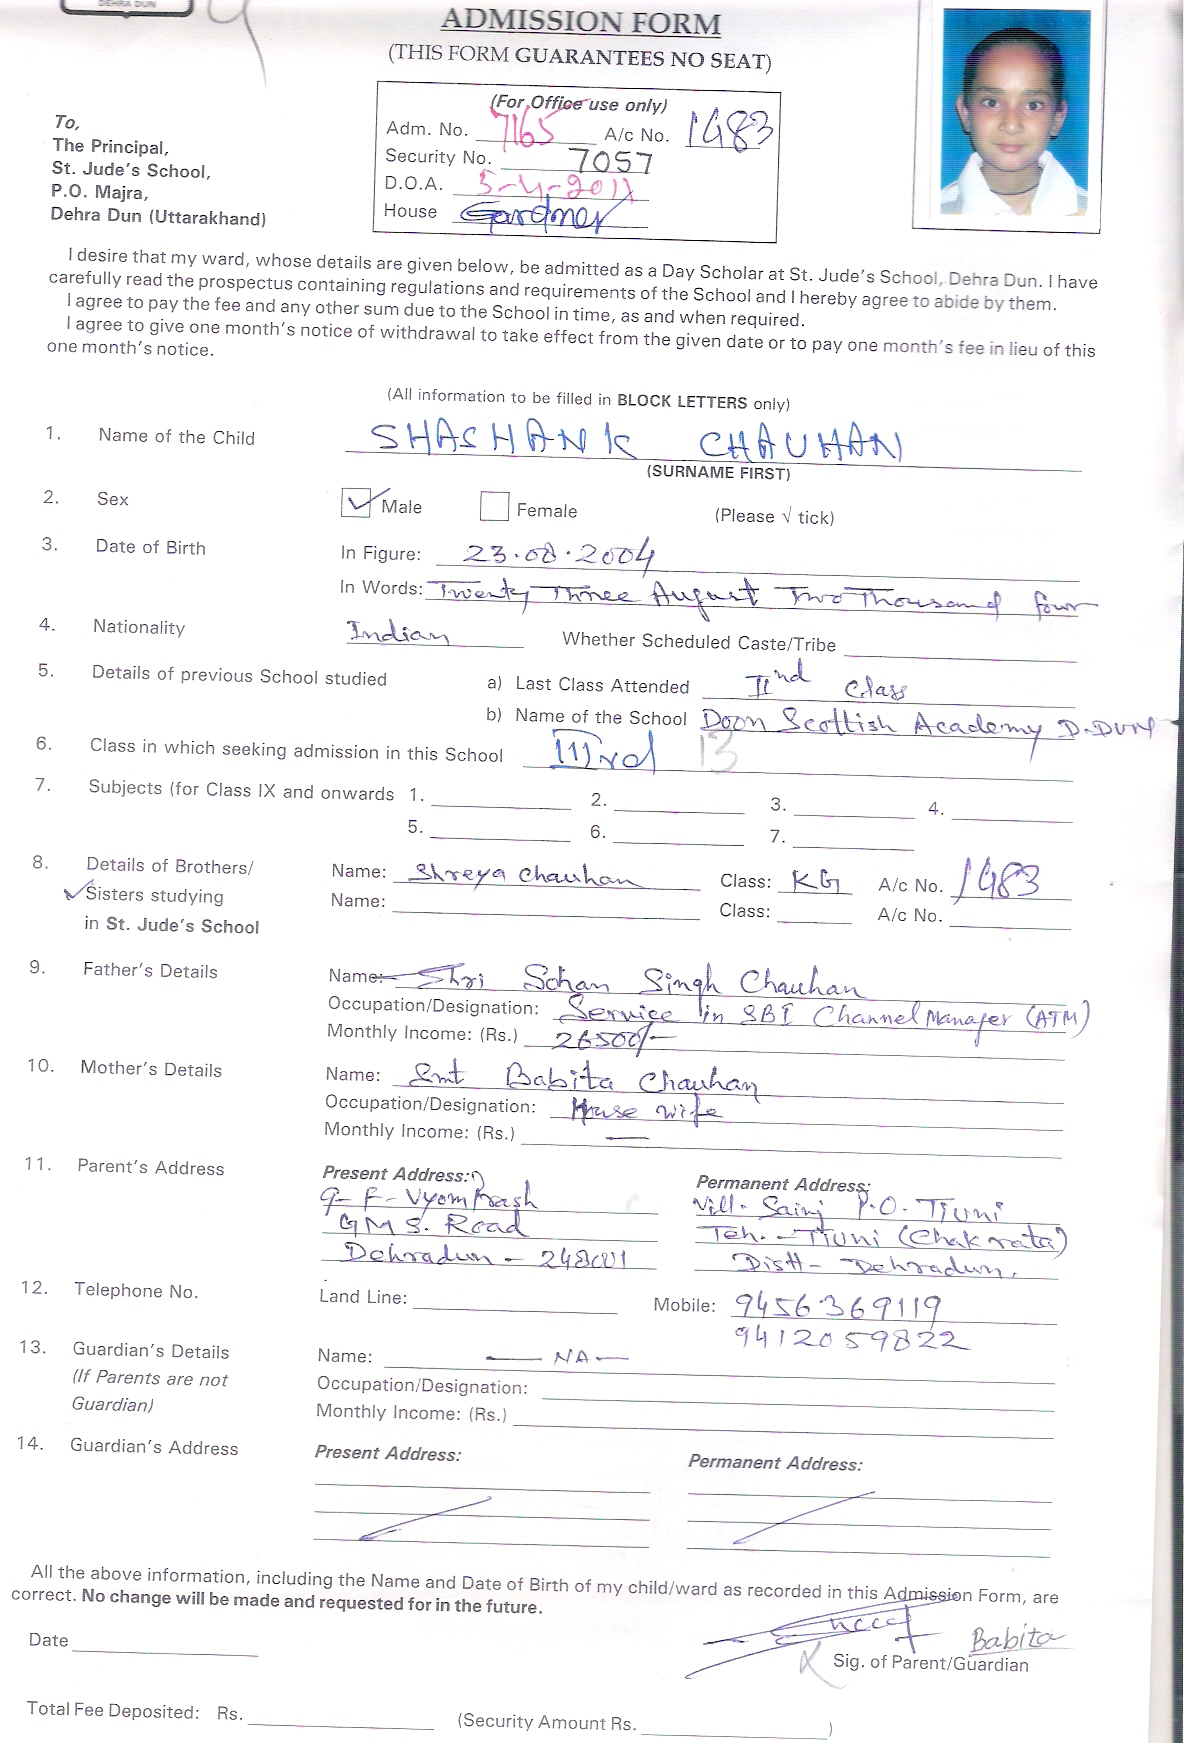 DEHRA DUN
ADMISSION FORM
(THIS FORM GUARANTEES NO SEAT)
(For Office use only)
Adm. No. 7165 A/c No. 1483
Security No. 7057
D.O.A. 5-4-2011
House Gardner
To,
The Principal,
St. Jude's School,
P.O. Majra,
Dehra Dun (Uttarakhand)
I desire that my ward, whose details are given below, be admitted as a Day Scholar at St. Jude's School, Dehra Dun. I have
carefully read the prospectus containing regulations and requirements of the School and I hereby agree to abide by them.
I agree to pay the fee and any other sum due to the School in time, as and when required.
I agree to give one month's notice of withdrawal to take effect from the given date or to pay one month's fee in lieu of this
one month's notice.
(All information to be filled in BLOCK LETTERS only)
1. Name of the Child SHASHANK CHAUHAN
(SURNAME FIRST)
2. Sex Male Female (Please √ tick)
3. Date of Birth In Figure: 23.08.2004
In Words: Twenty Three August Two Thousand four
4. Nationality Indian Whether Scheduled Caste/Tribe
5. Details of previous School studied a) Last Class Attended IInd Class
b) Name of the School Doon Scottish Academy D.DUN
6. Class in which seeking admission in this School IIIrd 13
7. Subjects (for Class IX and onwards 1. 2. 3. 4.
5. 6. 7.
8. Details of Brothers/ Name: Shreya Chauhan Class: KG A/c No. 1483
Sisters studying Name: Class: A/c No.
in St. Jude's School
9. Father's Details Name: Shri Sohan Singh Chauhan
Occupation/Designation: Service in SBI Channel Manager (ATM)
Monthly Income: (Rs.) 26500/-
10. Mother's Details Name: Smt Babita Chauhan
Occupation/Designation: House wife
Monthly Income: (Rs.) —
11. Parent's Address Present Address: Permanent Address:
G-F-Vyom Prash Vill- Sainj P.O. Tiuni
GMS. Road Teh. - Tiuni (Chakrata)
Dehradun - 248001 Distt- Dehradun.
12. Telephone No. Land Line: Mobile: 9456369119
9412059822
13. Guardian's Details Name: — NA —
(If Parents are not Occupation/Designation:
Guardian) Monthly Income: (Rs.)
14. Guardian's Address Present Address: Permanent Address:
All the above information, including the Name and Date of Birth of my child/ward as recorded in this Admission Form, are
correct. No change will be made and requested for in the future.
Babita
Date Sig. of Parent/Guardian
Total Fee Deposited: Rs. (Security Amount Rs. )